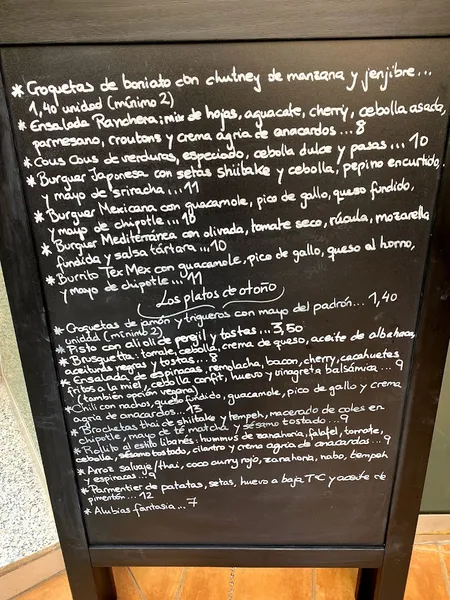 * Croquetas de boniato con chutney de manzana y jenjibre...
1,40 unidad (mínimo 2)
* Ensalada Ranchera: mix de hojas, aguacate, cherry, cebolla asada,
parmesano, croutons y crema agria de anacardos ... 8
* Cous Cous de verduras, especiado, cebolla dulce y pasas ... 10
* Burguer Japonesa con setas shiitake y cebolla, pepino encurtido,
y mayo de sriracha ... 11
* Burguer Mexicana con guacamole, pico de gallo, queso fundido,
y mayo de chipotle ... 10
* Burguer Mediterránea con olivada, tomate seco, rúcula, mozarella
fundida y salsa tártara ... 10
* Burrito Tex Mex con guacamole, pico de gallo, queso al horno,
y mayo de chipotle ... 11
Los platos de otoño
* Croquetas de jamón y trigueros con mayo del padrón ... 1,40
unidad (mínimo 2)
* Pisto con ali oli de perejil y tostas ... 3,50
* Brusquetta: tomate, cebolla, crema de queso, aceite de albahaca,
aceitunas negras y tostas ... 8
* Ensalada de espinacas, remolacha, bacon, cherry, cacahuetes
fritos a la miel, cebolla confit, huevo y vinagreta balsámica ... 9
(también opción vegana)
* Chili con nachos, queso fundido, guacamole, pico de gallo y crema
agria de anacardos ... 13
* Brochetas thai de shiitake y tempeh, macerado de coles en
chipotle, mayo de té matcha y sésamo tostado ... 9
* Rollito al estilo libanés: hummus de zanahoria, falafel, tomate,
cebolla, sésamo tostado, cilantro y crema agria de anacardos ... 9
* Arroz salvaje/thai, coco curry rojo, zanahoria, nabo, tempeh
y espinacas ... 9
* Parmentier de patatas, setas, huevo a baja TªC y aceite de
pimentón ... 12
* Alubias fantasia ... 7